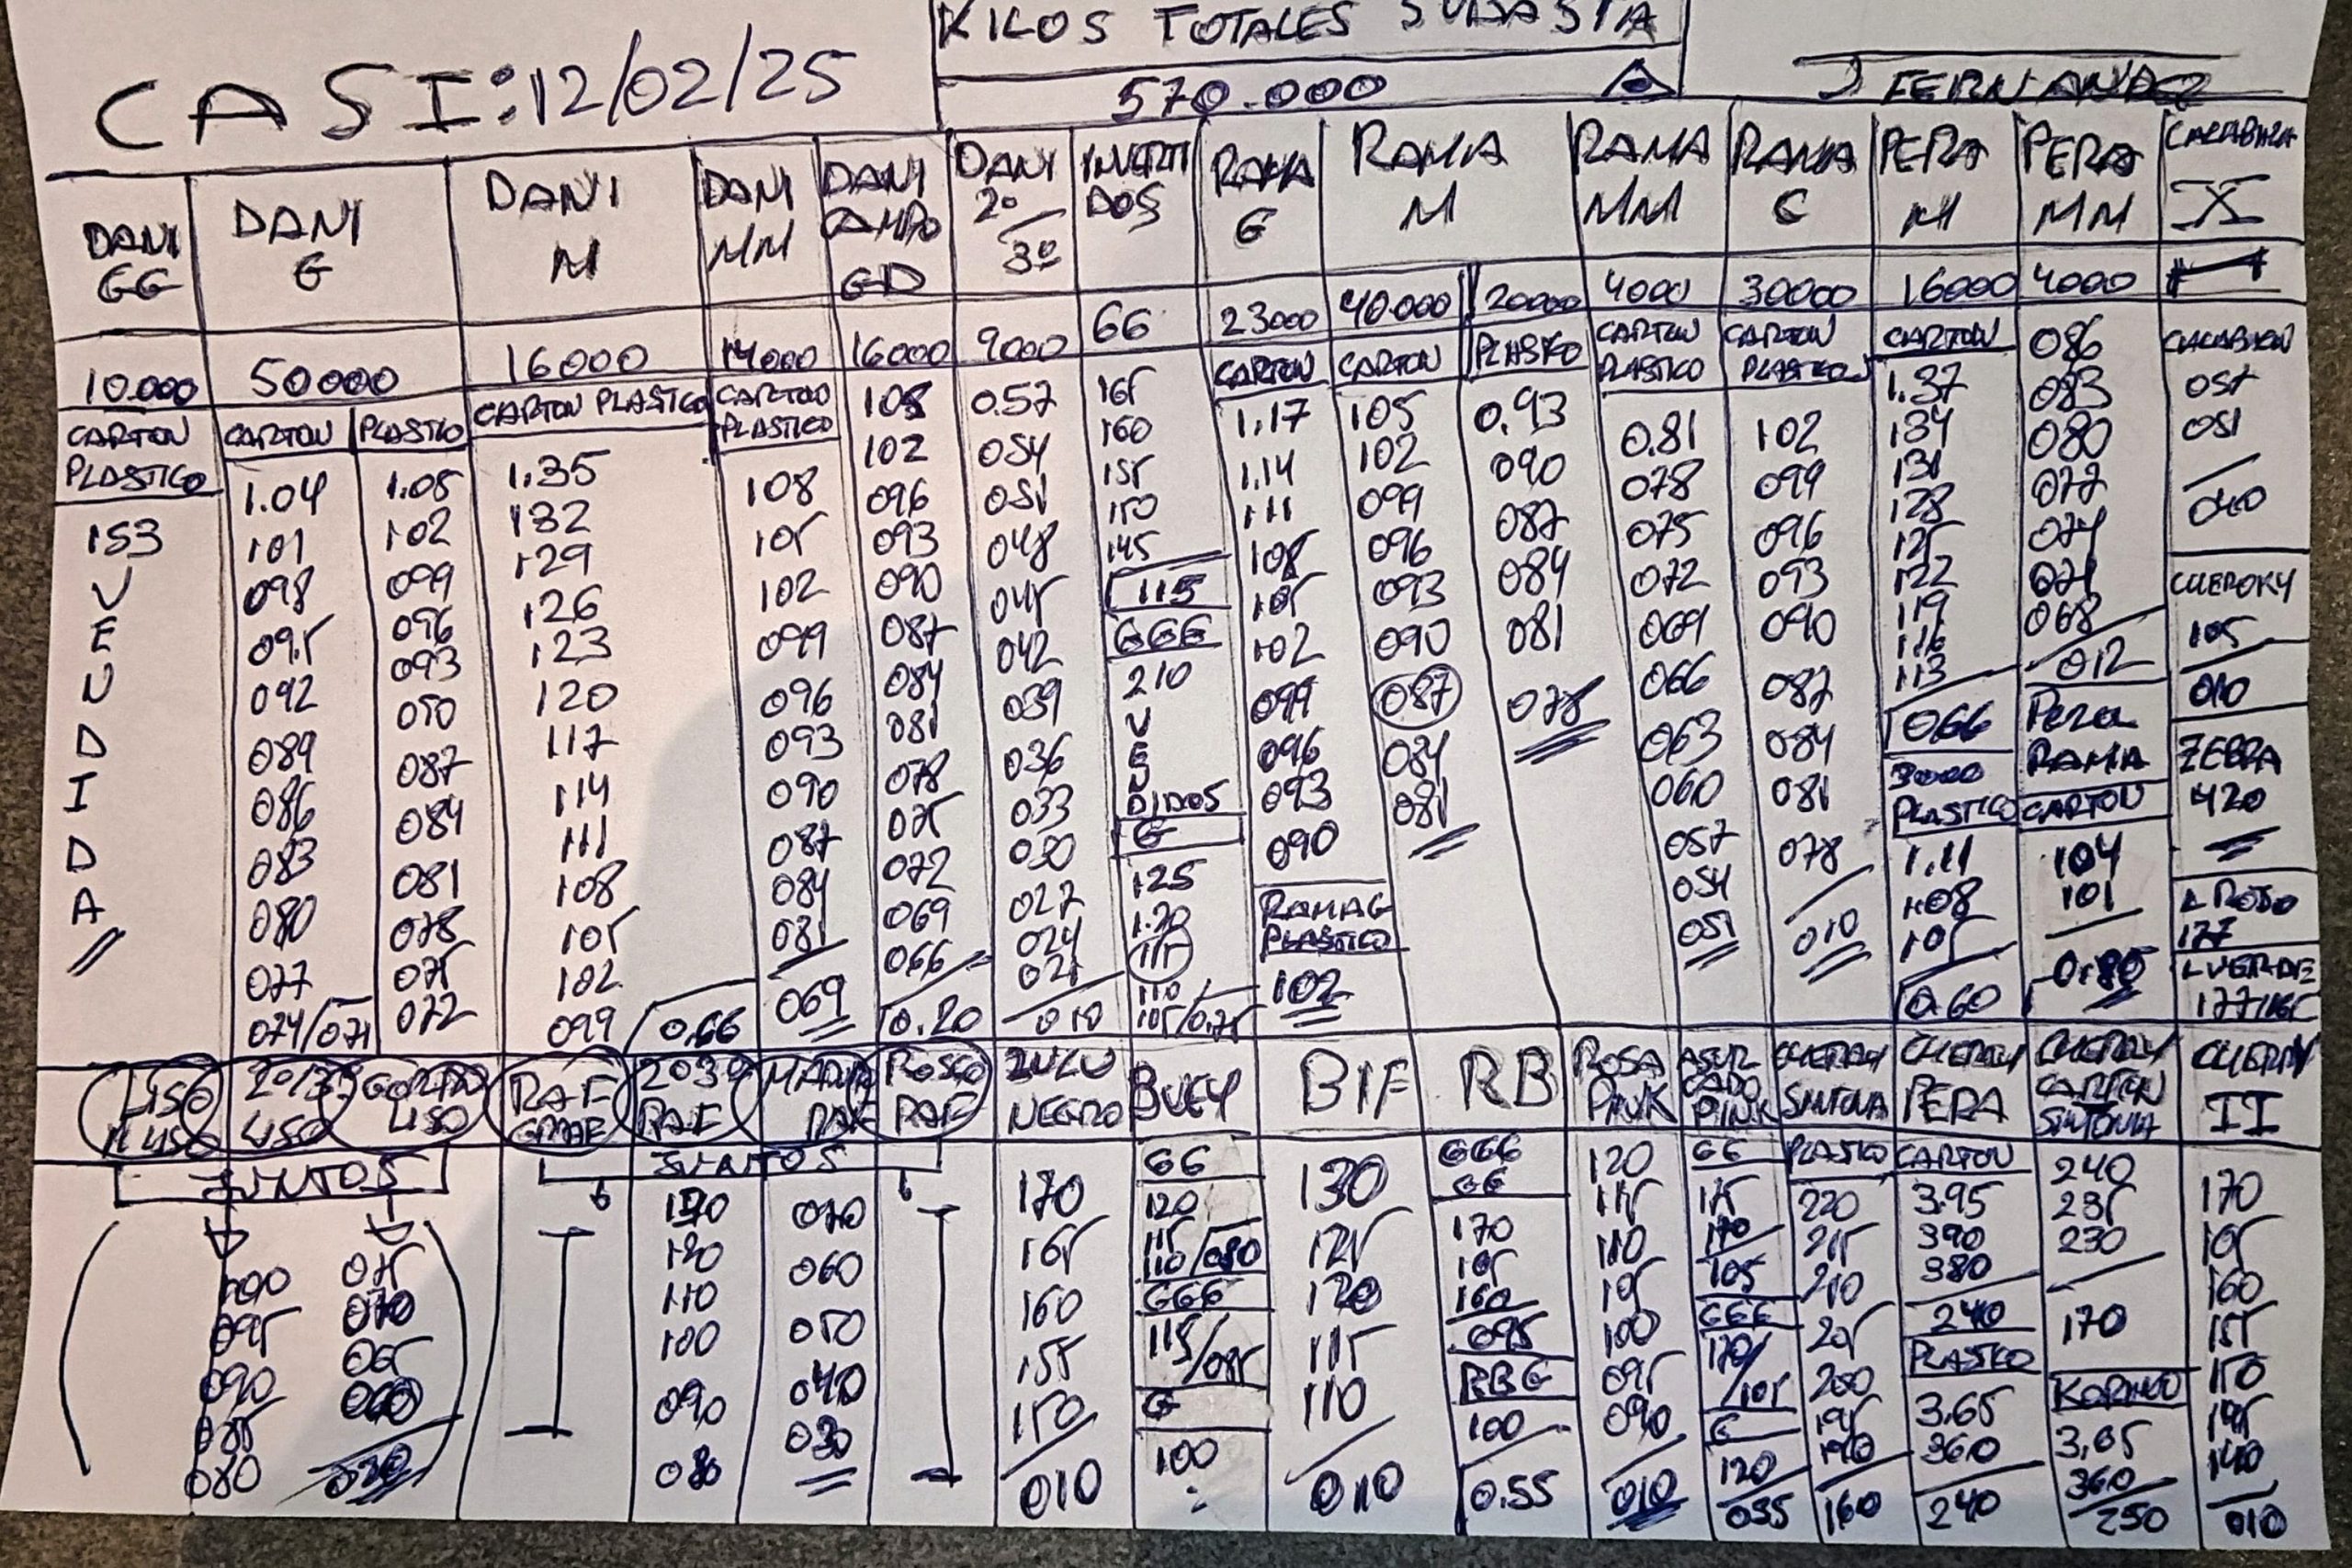 KILOS TOTALES SUBASTA
CASI: 12/02/25
570.000
J FERNANDEZ
DANI GG
10.000
CARTON
PLASTICO
153
V
E
N
D
I
D
A
DANI G
50000
CARTON
1.04
101
098
095
092
089
086
083
080
077
074/071
PLASTICO
1.05
102
099
096
093
090
087
084
081
078
075
072
DANI M
16000
CARTON PLASTICO
1.35
132
129
126
123
120
117
114
111
108
105
102
099
0.66
DANI MM
14000
CARTON
PLASTICO
108
105
102
099
096
093
090
087
084
081
069
DANI
CAMPO
GD
16000
108
102
096
093
090
087
084
081
078
075
072
069
066
0.20
DANI
2º
3º
9000
0.57
054
051
048
045
042
039
036
033
030
027
024
021
010
INVERTI
DOS
GG
165
160
155
150
145
115
GGG
210
V
E
N
DIDOS
G
125
1.20
115
110
105/0.75
RAMA
G
23000
CARTON
1.17
1.14
111
108
105
102
099
096
093
090
RAMA G
PLASTICO
102
RAMA
M
40.000
CARTON
105
102
099
096
093
090
087
084
081
20000
PLASTICO
0.93
090
087
084
081
078
RAMA
MM
4000
CARTON
PLASTICO
0.81
078
075
072
069
066
063
060
057
054
051
RAMA
C
30000
CARTON
PLASTICO
102
099
096
093
090
087
084
081
078
010
PERA
M
16000
CARTON
1.37
134
131
128
125
122
119
116
113
066
3000
PLASTICO
1.11
1.08
105
0.60
PERA
MM
4000
086
083
080
077
074
071
068
012
Pera
RAMA
CARTON
104
101
0.80
CALABAZA
X
CALABACIN
057
051
040
CHEROKY
105
010
ZEBRA
420
L ROJO
177
L VERDE
LISO
2º/3º
LISO
GORDO
LISO
JUNTOS
100
095
090
085
080
075
070
065
060
030
RAF
2º3º
RAF
RAF
ROSCO
RAF
JUNTOS
120
110
100
090
080
070
060
050
040
030
ZULU
NEGRO
170
165
160
155
150
010
BUEY
GG
120
115
110/080
GGG
115/085
G
100
BIF
130
125
120
115
110
010
RB
GGG
GG
170
165
160
095
RB G
100
0.55
ROSA
PINK
120
115
110
105
100
095
090
010
ASUR
CADO
PINK
GG
175
170
105
GGG
170/
105
G
120
035
CHERRY
SINTONIA
PLASTICO
220
215
210
205
200
195
190
160
CHERRY
PERA
CARTON
3.95
390
380
240
PLASTICO
3.65
360
240
CHERRY
CARTON
SINTONIA
240
235
230
170
KORINTO
3,65
360
250
CHERRY
II
170
165
160
155
150
145
140
010